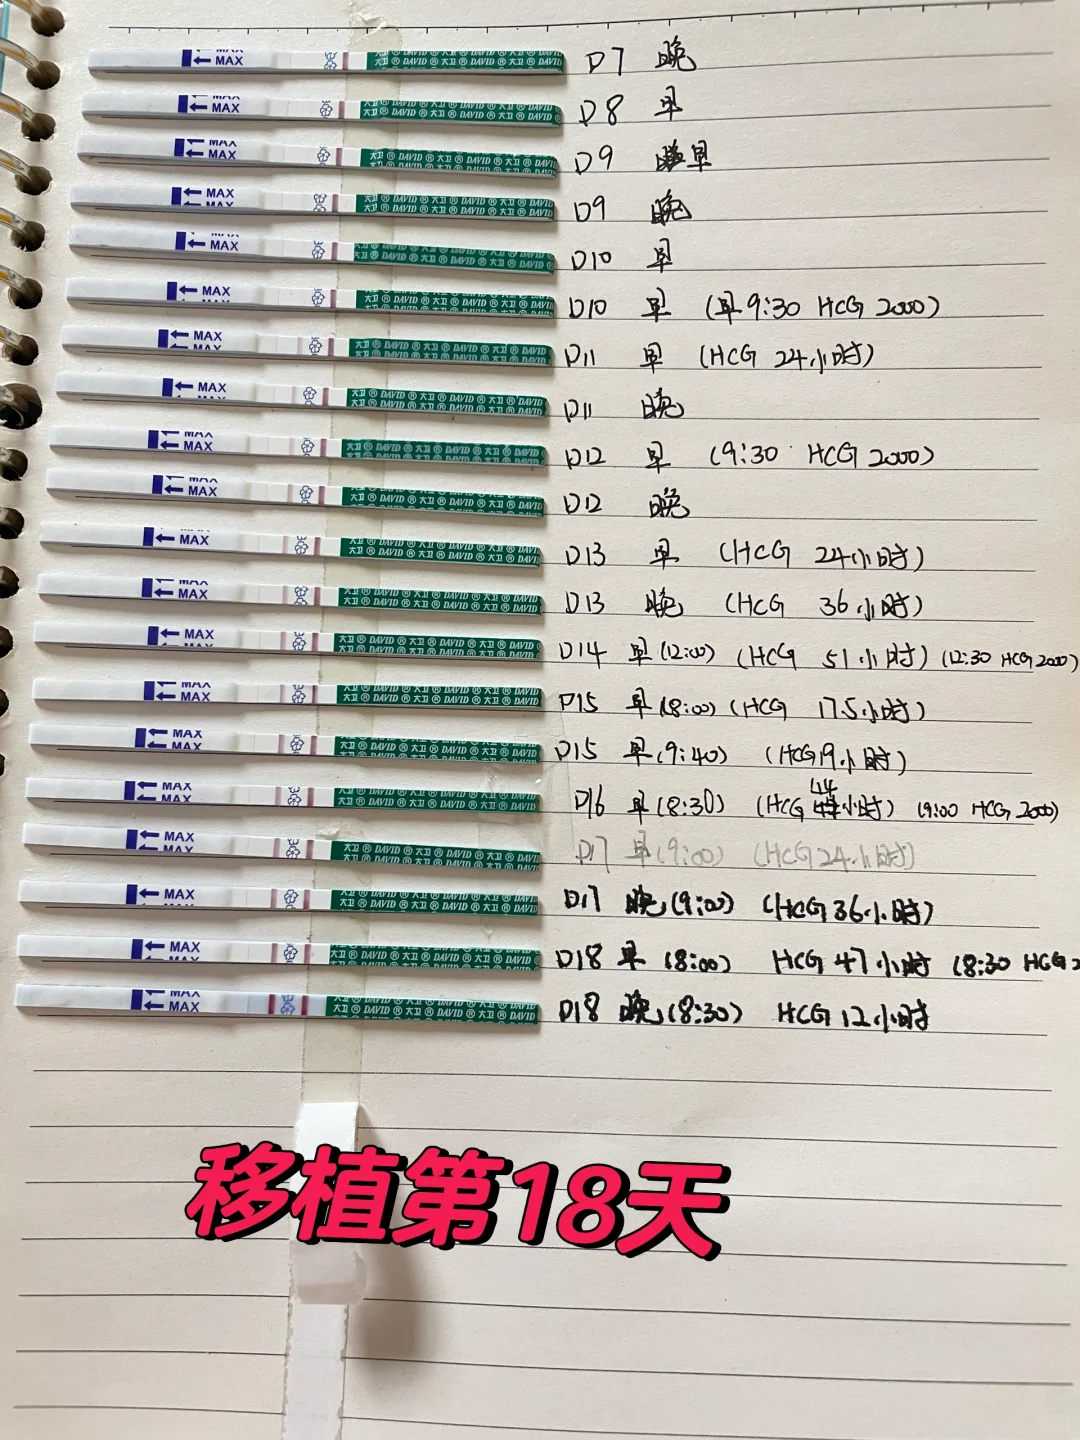 MAX
MAX
大卫® DAVID ® 大卫 ® DAVID ® 大卫 ® DAVID
D7 晚
D8 早
D9 早
D9 晚
D10 早
D10 早 (早9:30 HCG 2000)
D11 早 (HCG 24小时)
D11 晚
D12 早 (9:30 HCG 2000)
D12 晚
D13 早 (HCG 24小时)
D13 晚 (HCG 36小时)
D14 早(12:00) (HCG 51小时) (12:30 HCG 2000)
D15 早(8:00) (HCG 17.5小时)
D15 早(9:40) (HCG 19小时)
D16 早(8:30) (HCG 44小时) (9:00 HCG 2000)
D17 早(9:00) (HCG 24小时)
D17 晚(9:00) (HCG 36小时)
D18 早(8:00) HCG 47小时 (8:30 HCG 2
D18 晚(8:30) HCG 12小时
移植第18天